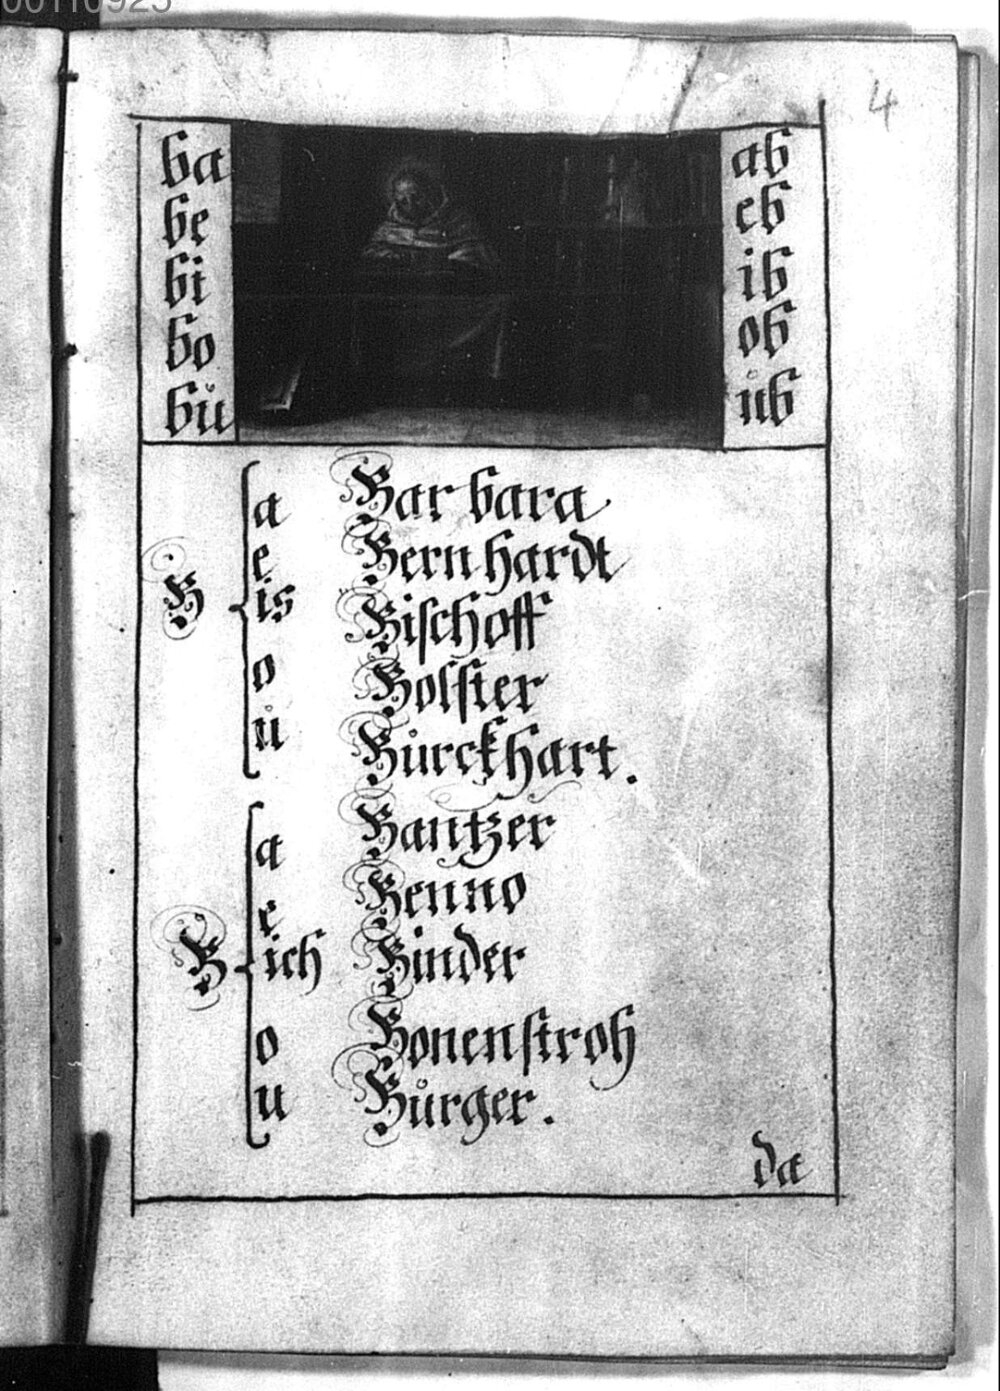 00110925
4
ba ab
be eb
bi ib
bo ob
bů ůb
a Barbara
e Bernhardt
B is Bischoff
o Bolster
ů Bůrckhart.
a Bantzer
e Benno
B ich Binder
o Bonenstroh
u Bůrger.
da